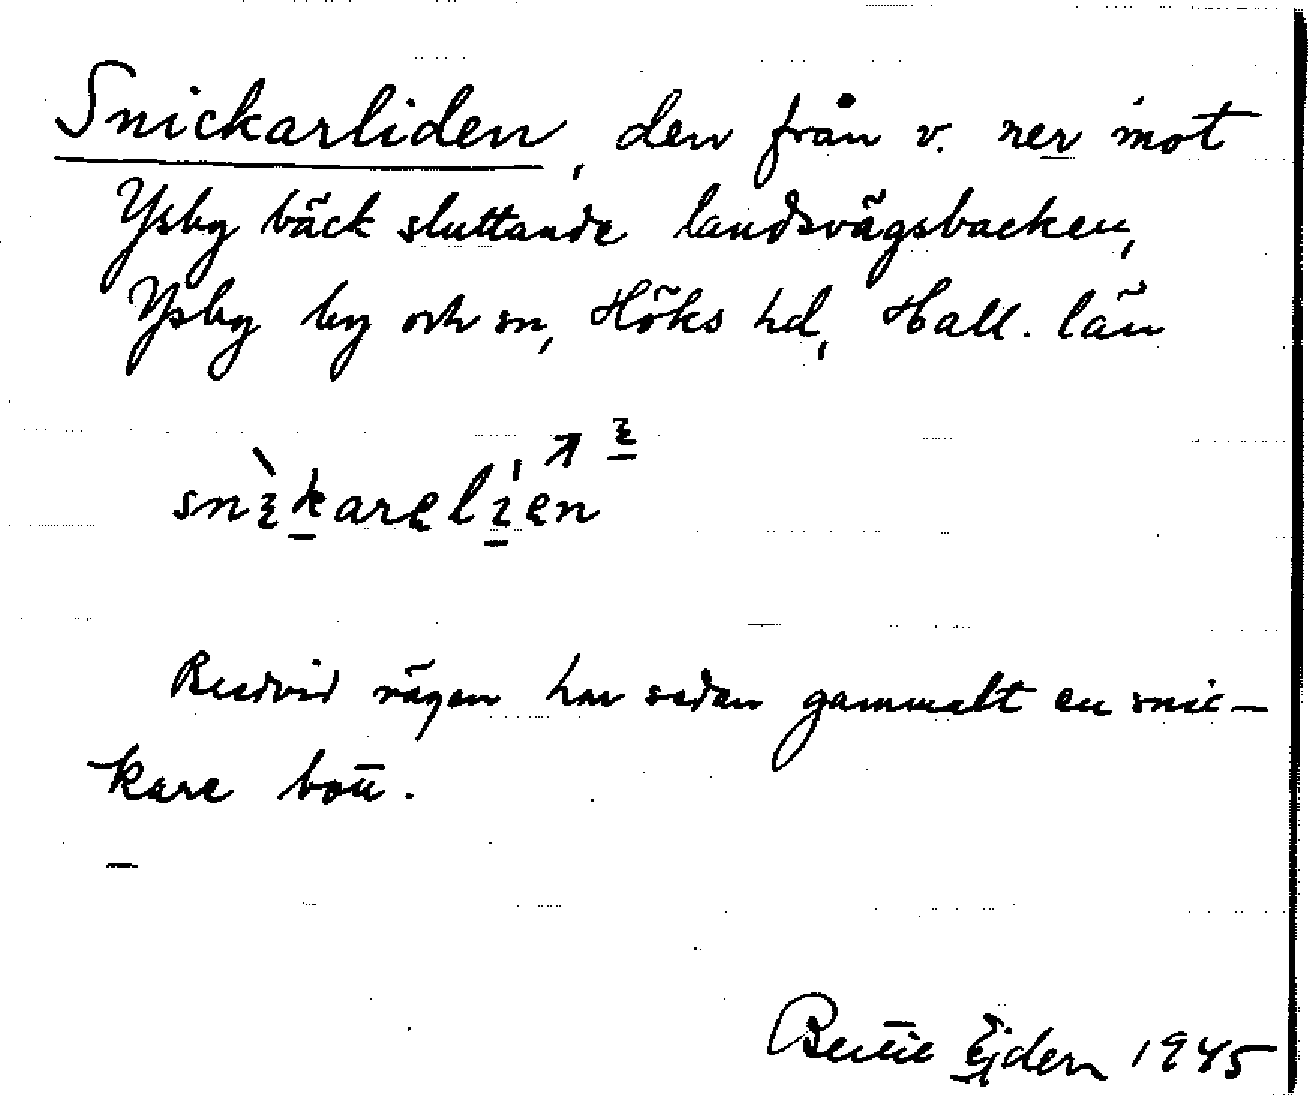 Snickarliden, den från v. ner mot
Ysby bäck sluttande landsvägsbacken,
Ysby by och sn, Höks hd, Hall. län
Bredvid vägen har sedan gammalt en snic-
kare bott.
Bertil Ejder 1945